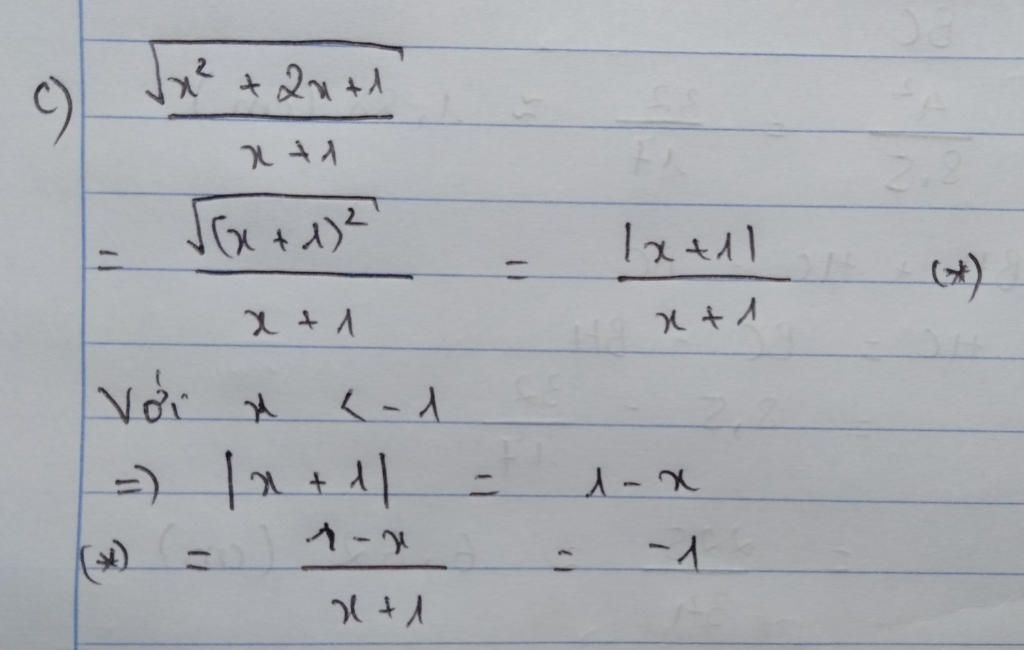 c) √(x² + 2x + 1) / (x + 1)
= √((x + 1)²) / (x + 1) = |x + 1| / (x + 1) (*)
Với x < -1
=> |x + 1| = 1 - x
(*) = (1 - x) / (x + 1) = -1